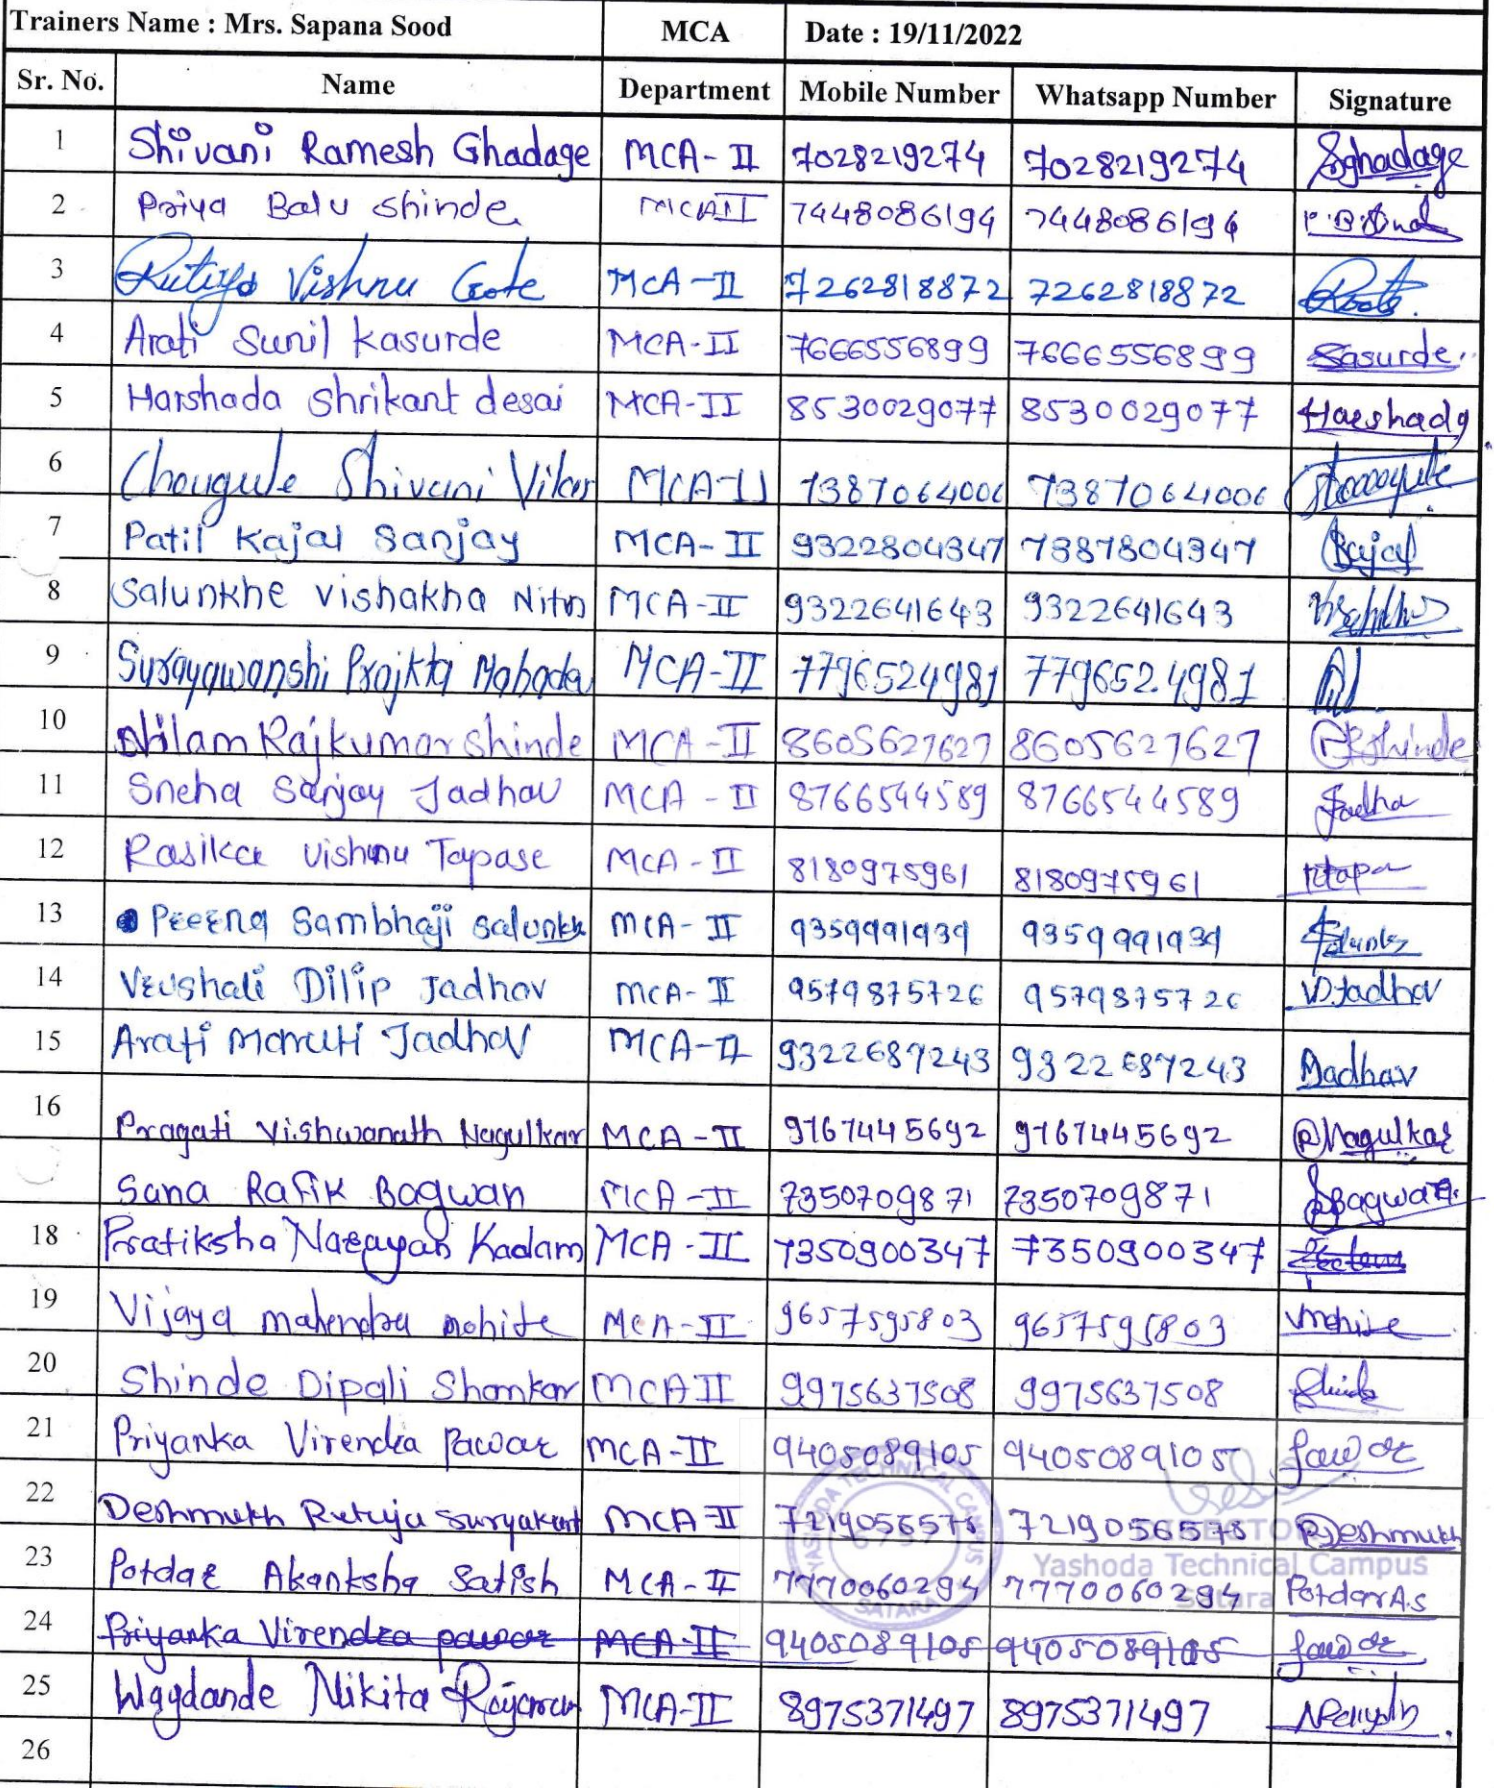 Trainers Name : Mrs. Sapana Sood MCA Date : 19/11/2022
Sr. No. Name Department Mobile Number Whatsapp Number Signature
1 Shivani Ramesh Ghadage MCA-II 7028219274 7028219274 Sghadage
2 Priya Balu Shinde MCAII 7448086194 7448086194
3 Rutuja Vishnu Gote MCA-II 7262818872 7262818872
4 Arati Sunil Kasurde MCA-II 7666556899 7666556899 Sasurde
5 Harshada Shrikant desai MCA-II 8530029077 8530029077 Harshada
6 Chougule Shivani Vikas MCA-II 7387064006 7387064006
7 Patil Kajal Sanjay MCA-II 9322804347 7387804347 Kajal
8 Salunkhe Vishakha Nitin MCA-II 9322641643 9322641643
9 Surayawanshi Prajkta Mahadev MCA-II 7796524981 7796524981
10 Nilam Rajkumar Shinde MCA-II 8605627627 8605627627 Shinde
11 Sneha Sanjay Jadhav MCA-II 8766544589 8766544589 Jadhav
12 Rasika Vishnu Tapase MCA-II 8180975961 8180975961
13 Prerna Sambhaji Salunkhe MCA-II 9359991939 9359991939
14 Vrushali Dilip Jadhav MCA-II 9579875726 9579875726 V.D.Jadhav
15 Arati Maruti Jadhav MCA-II 9322687243 9322687243 Aadhav
16 Pragati Vishwanath Nagulkar MCA-II 9767445692 9767445692 P Nagulkar
Sana Rafik Bagwan MCA-II 7350709871 7350709871 SBagwan
18 Pratiksha Narayan Kadam MCA-II 7350900347 7350900347
19 Vijaya mahendra mohite MCA-II 9657595803 9657595803 Vmohite
20 Shinde Dipali Shankar MCAII 9975637508 9975637508 Shinde
21 Priyanka Virendra Pawar MCA-II 9405089105 9405089105 Pawar
22 Deshmukh Rutuja Suryakant MCA-II 7219056578 7219056578 RDeshmukh
23 Potdar Akanksha Satish MCA-II 7770060294 7770060294 Potdar A.S
24 Priyanka Virendra pawar MCA-II 9405089105 9405089105 Pawar
25 Waydande Nikita Rajaram MCA-II 8975371497 8975371497
26
YASHODA TECHNICAL CAMPUS
SATARA
DIRECTOR
Yashoda Technical Campus
Satara